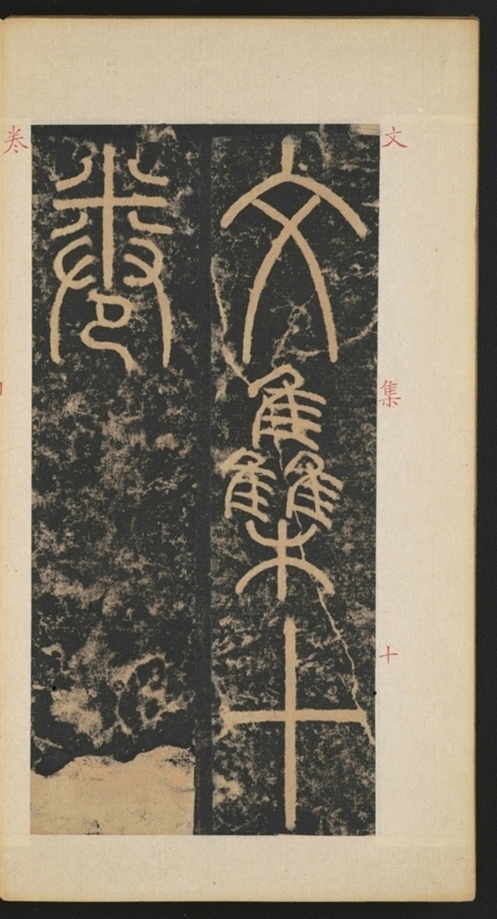 文集十
卷
文
集
十
卷